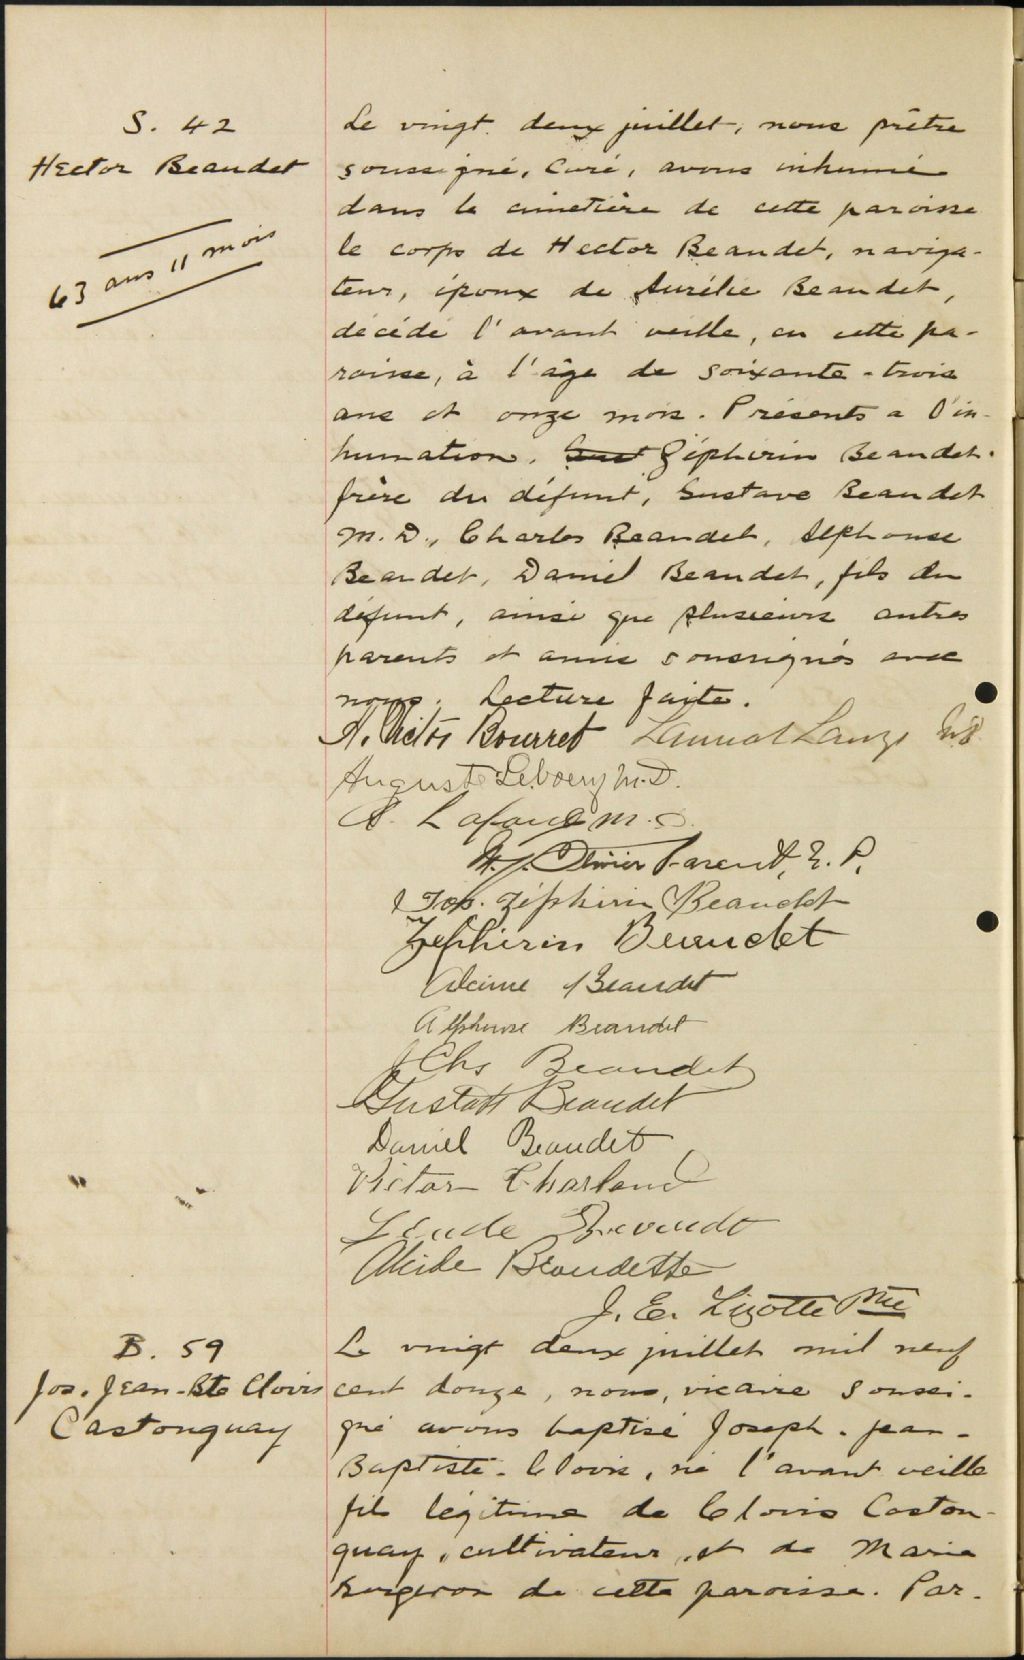 S. 42
Hector Beaudet
63 ans 11 mois
Le vingt deux juillet, nous prêtre
soussigné, Curé, avons inhumé
dans le cimetière de cette paroisse
le corps de Hector Beaudet, naviga-
teur, époux de Aurélie Beaudet,
décédé l'avant veille, en cette pa-
roisse, à l'âge de soixante-trois
ans et onze mois. Présents a l'in-
humation. Zéphirin Beaudet.
frère du défunt, Gustave Beaudet
M. D., Charles Beaudet, Alphonse
Beaudet, Daniel Beaudet, fils du
défunt, ainsi que plusieurs autres
parents et amis soussignés avec
nous. Lecture faite.
A. Victor Bourret
Auguste Leboeuf M.D.
Lafond M. D.
Olivier Parent, E. P.
Jos. Zéphirin Beaudet
Zephirin Beaudet
Beaudet
Alphonse Beaudet
J Chs Beaudet
Gustave Beaudet
Daniel Beaudet
Victor Charland
Beaudet
Alcide Beaudette
J. E. Lizotte Ptre
B. 59
Jos. Jean-Bte Clovis
Castonguay
Le vingt deux juillet mil neuf
cent douze, nous, vicaire soussi-
gné avons baptisé Joseph-Jean-
Baptiste-Clovis, né l'avant veille
fils légitime de Clovis Caston-
guay, cultivateur, et de Marie
Turgeron de cette paroisse. Par-